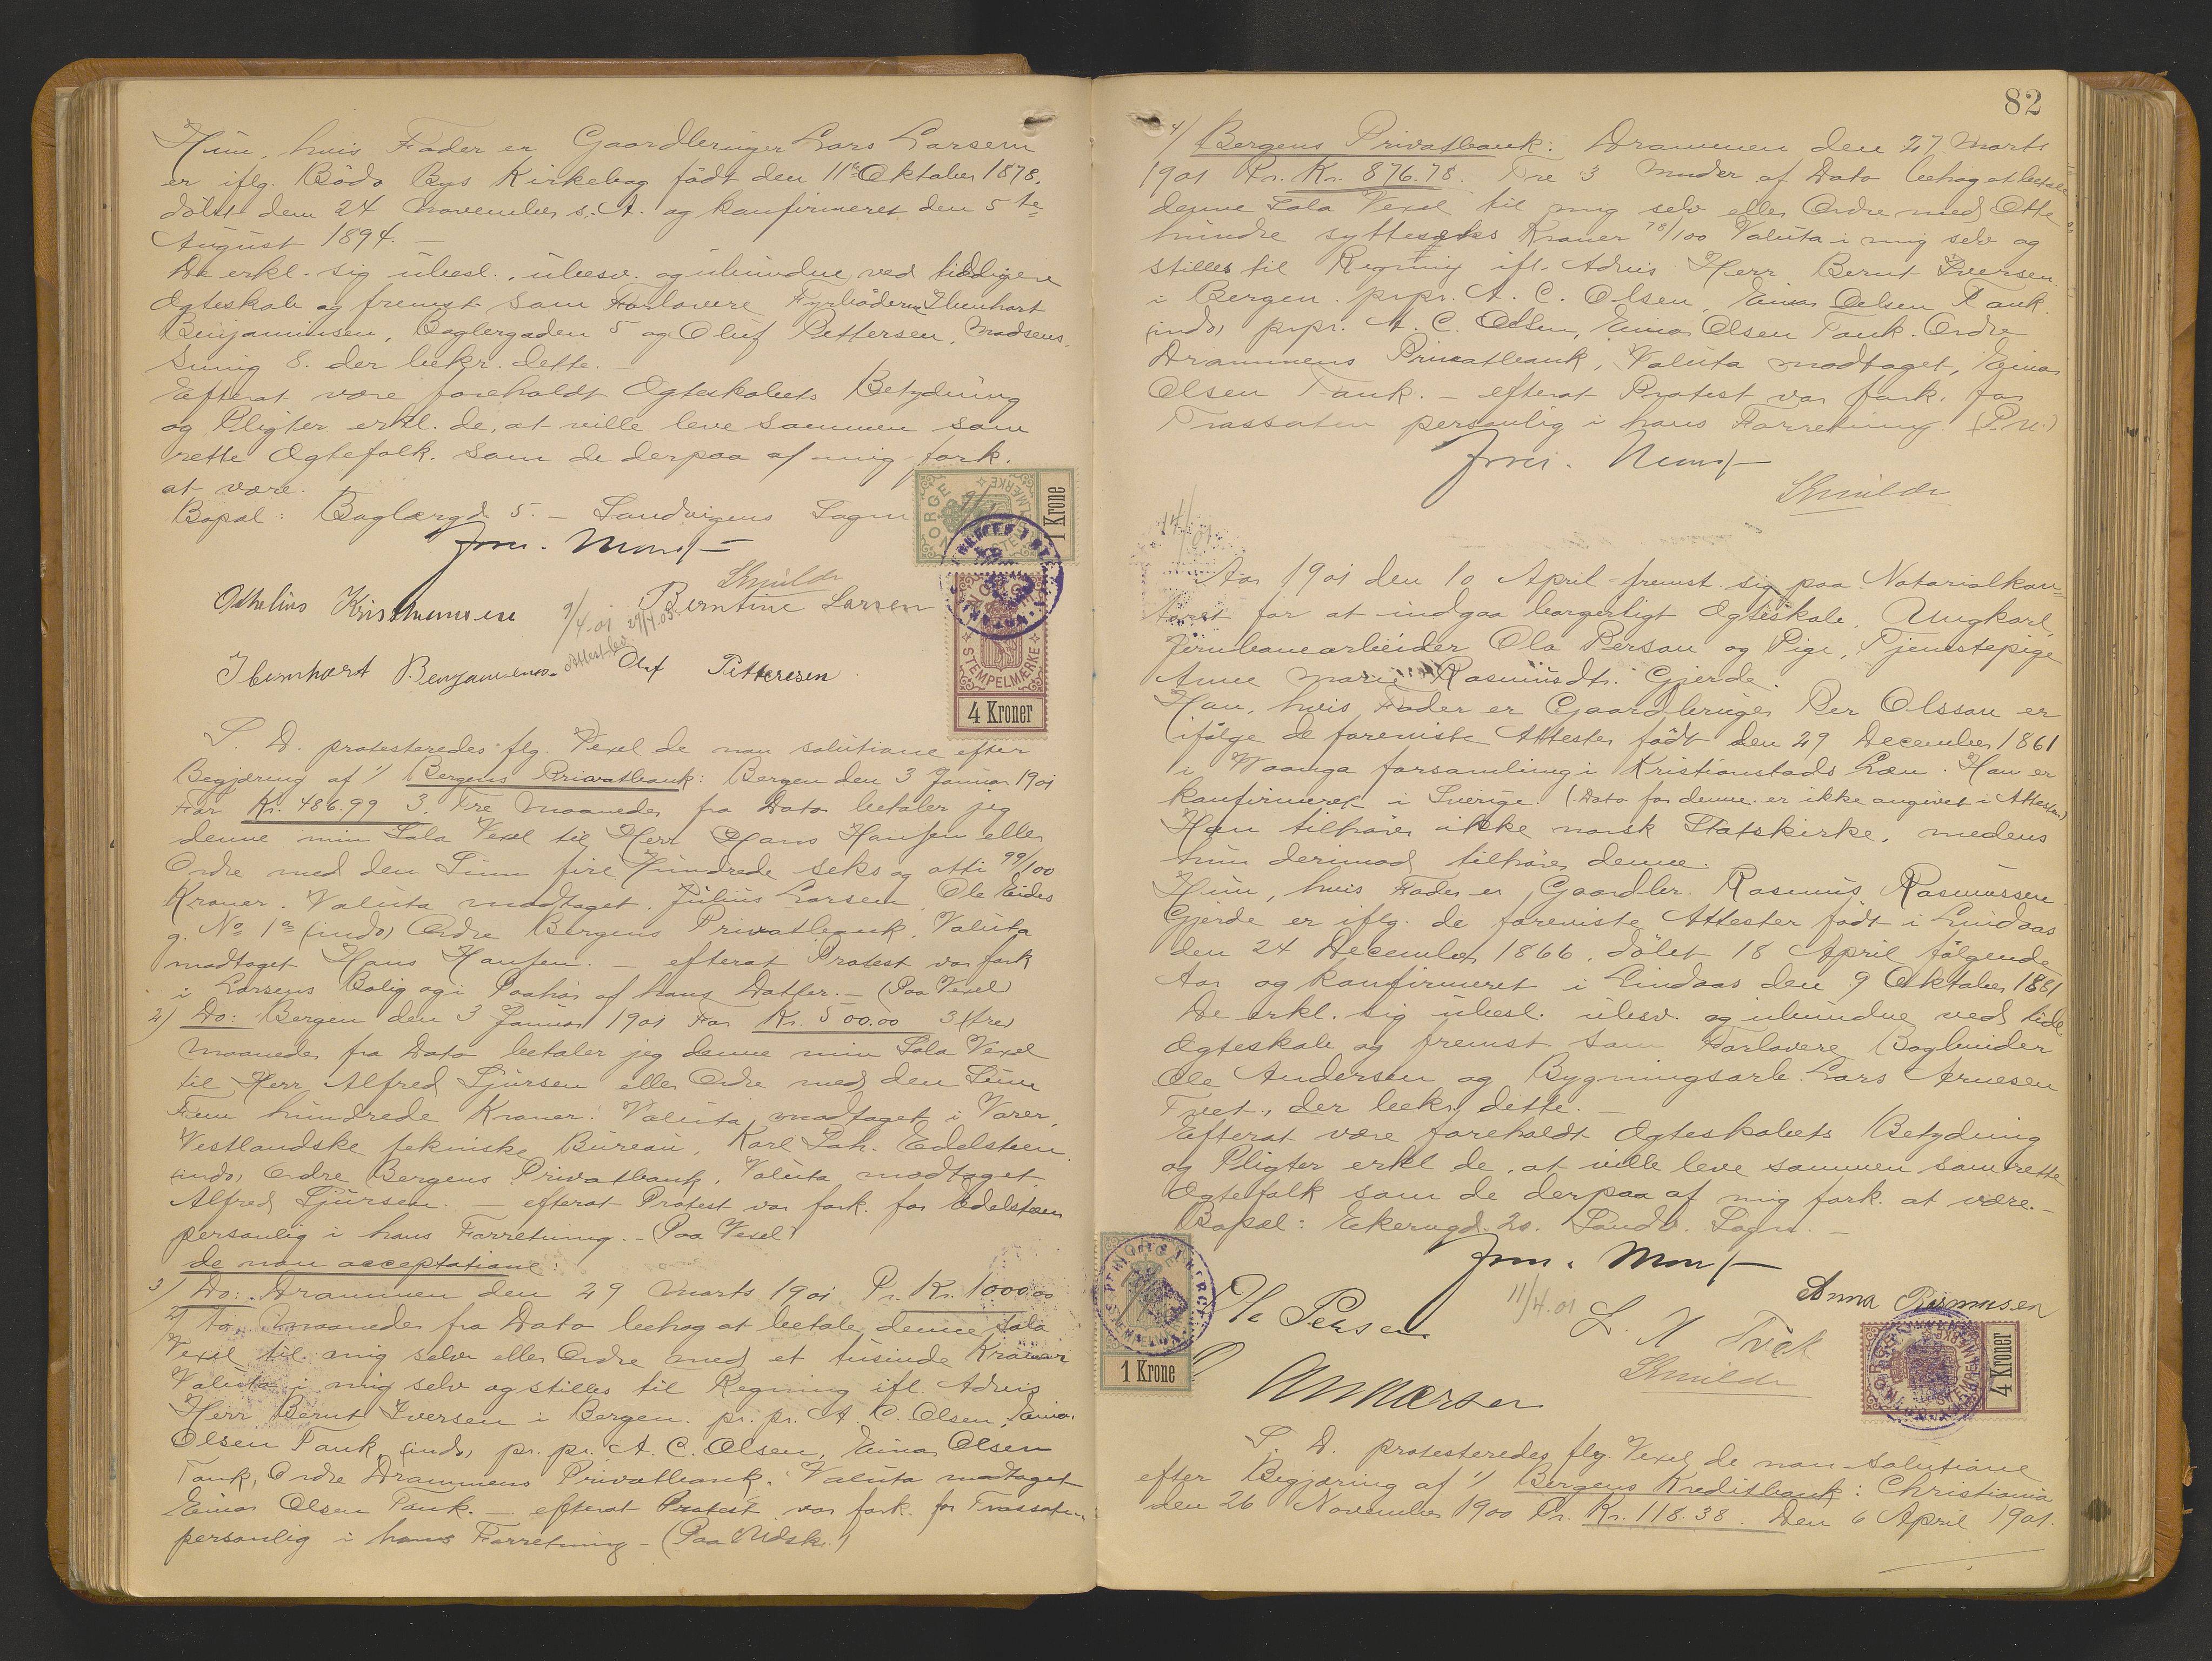 Hun, hvis Fader er Gaardbruger Lars Larsen
er iflg. Bodø Bys Kirkebog født den 11te Oktober 1878,
døbt den 24 November s. A. og konfirmeret den 5te
August 1894. —
De erkl. sig ubesl., ubesv. og ubundne ved tidligere
Ægteskab og fremst. som Forlovere Fyrbøderne Ibenhart
Benjaminsen, Baglergaden 5 og Oluf Pettersen, Madsens
Smug 8. der bekr. dette. —
Efterat være foreholdt Ægteskabets Betydning
og Pligter erkl. de, at ville leve sammen som
rette Ægtefolk. som de derpaa af mig fork.
at være. —
Bopæl: Baglergd. 5. — Sandvigens Sogn
1 Krone
Berntine Larsen
9/4.01
Ibenhart Benjamins.
Oluf Pettersen
STEMPELMÆRKE
4 Kroner
S. D. protesteredes flg. Vexel de non solutione efter
Begjæring af 1/ Bergens Privatbank: Bergen den 3 Januar 1901
For Kr. 486.99 3. Tre Maaneder fra Dato betaler jeg
denne min Sola Vexel til Herr Hans Hansen eller
Ordre med den Sum fire Hundrede seks og otti 99/100
Kroner. Valuta modtaget. Julius Larsen, Ole Eides
g. No 1a (indo) Ordre Bergens Privatbank. Valuta
modtaget Hans Hansen. — efterat Protest var fork
i Larsens Bolig og i Paahør af hans Datter. — (Paa Vexel)
2) Do: Bergen den 3 Januar 1901 For Kr. 500.00 3 (tre)
Maaneder fra Dato betaler jeg denne min Sola Vexel
til Herr Alfred Sjursen eller Ordre med den Sum
Fem hundrede Kroner: Valuta modtaget i Varer,
Vestlandske tekniske Bureau, Karl Joh. Edelsteen.
(indo) Ordre Bergens Privatbank, Valuta modtaget.
Alfred Sjursen. — efterat Protest var fork. for Edelsteen
personlig i hans Forretning. — (Paa Vexel)
de non acceptatione:
3) Do: Drammen den 29 Marts 1901 Pr. Kr. 1000.00
2) To Maaneder fra Dato behag at betale denne Sola
Vexel til mig selv eller Ordre med et tusinde Kroner
Valuta i mig selv og stilles til Regning ifl. Advis
Herr Bernt Iversen i Bergen. pr. pr. A. C. Olsen, Einar
Olsen Tank, (indo) pr. pr. A. C. Olsen, Einar Olsen
Tank, Ordre Drammens Privatbank. Valuta modtaget
Einar Olsen Tank. — efterat Protest var fork. for Trassaten
personlig i hans Forretning — (Paa Udsk.)
82
4/ Bergens Privatbank: Drammen den 27 Marts
1901 Pr. Kr. 876.78. Tre 3 Mnder af Dato behag at betale
denne Sola Vexel til mig selv eller Ordre med Otte
hundre sytteseks Kroner 78/100 Valuta i mig selv og
stilles til Regning ifl. Advis Herr Bernt Iversen
i Bergen. prpr. A. C. Olsen, Einar Oelsen Tank.
(indo) prpr. A. C. Olsen, Einar Olsen Tank. Ordre
Drammens Privatbank, Valuta modtaget, Einar
Olsen Tank. — efterat Protest var fork. for
Trassaten personlig i hans Forretning.
Aar 1901 den 10 April fremst. sig paa Notarialkon-
toret for at indgaa borgerligt Ægteskab, Ungkarl,
Jernbanearbeider Ola Person og Pige, Tjenestepige
Anne Marie Rasmusdtr. Gjerde.
Han, hvis Fader er Gaardbruger Per Olsson er
ifølge de foreviste Attester født den 29 December 1861
i Woanga forsamling i Kristianstads Læn. Han er
konfirmeret i Sverige. (Dato for denne er ikke angivet i Attesten)
Han tilhører ikke norsk Statskirke, medens
hun derimod tilhører denne.
Hun, hvis Fader er Gaardbr. Rasmus Rasmussen
Gjerde er iflg. de foreviste Attester født i Lindaas
den 24 December 1866, døbt 18 April følgende
Aar og konfirmeret i Lindaas den 9 Oktober 1881
De erkl. sig ubesl. ubesv. og ubundne ved tidl.
Ægteskab og fremst. som Forlovere Bogbinder
Ole Andersen og Bygningsarb. Lars Arnesen
Tvet., der bekr. dette. —
Efterat være foreholdt Ægteskabets Betydning
og Pligter erkl de, at ville leve sammen som rette
Ægtefolk som de derpaa af mig fork. at være. —
Bopæl: Ekerngd. 20. Sandv. Sogn. —
11/4.01
Anna Rasmusen
1 Krone
4 Kroner
S. D. protesteredes flg. Vexel de non solutione
efter Begjæring af 1/ Bergens Kreditbank: Christiania
den 26 November 1900 Pr. Kr. 118.38. Den 6 April 1901.